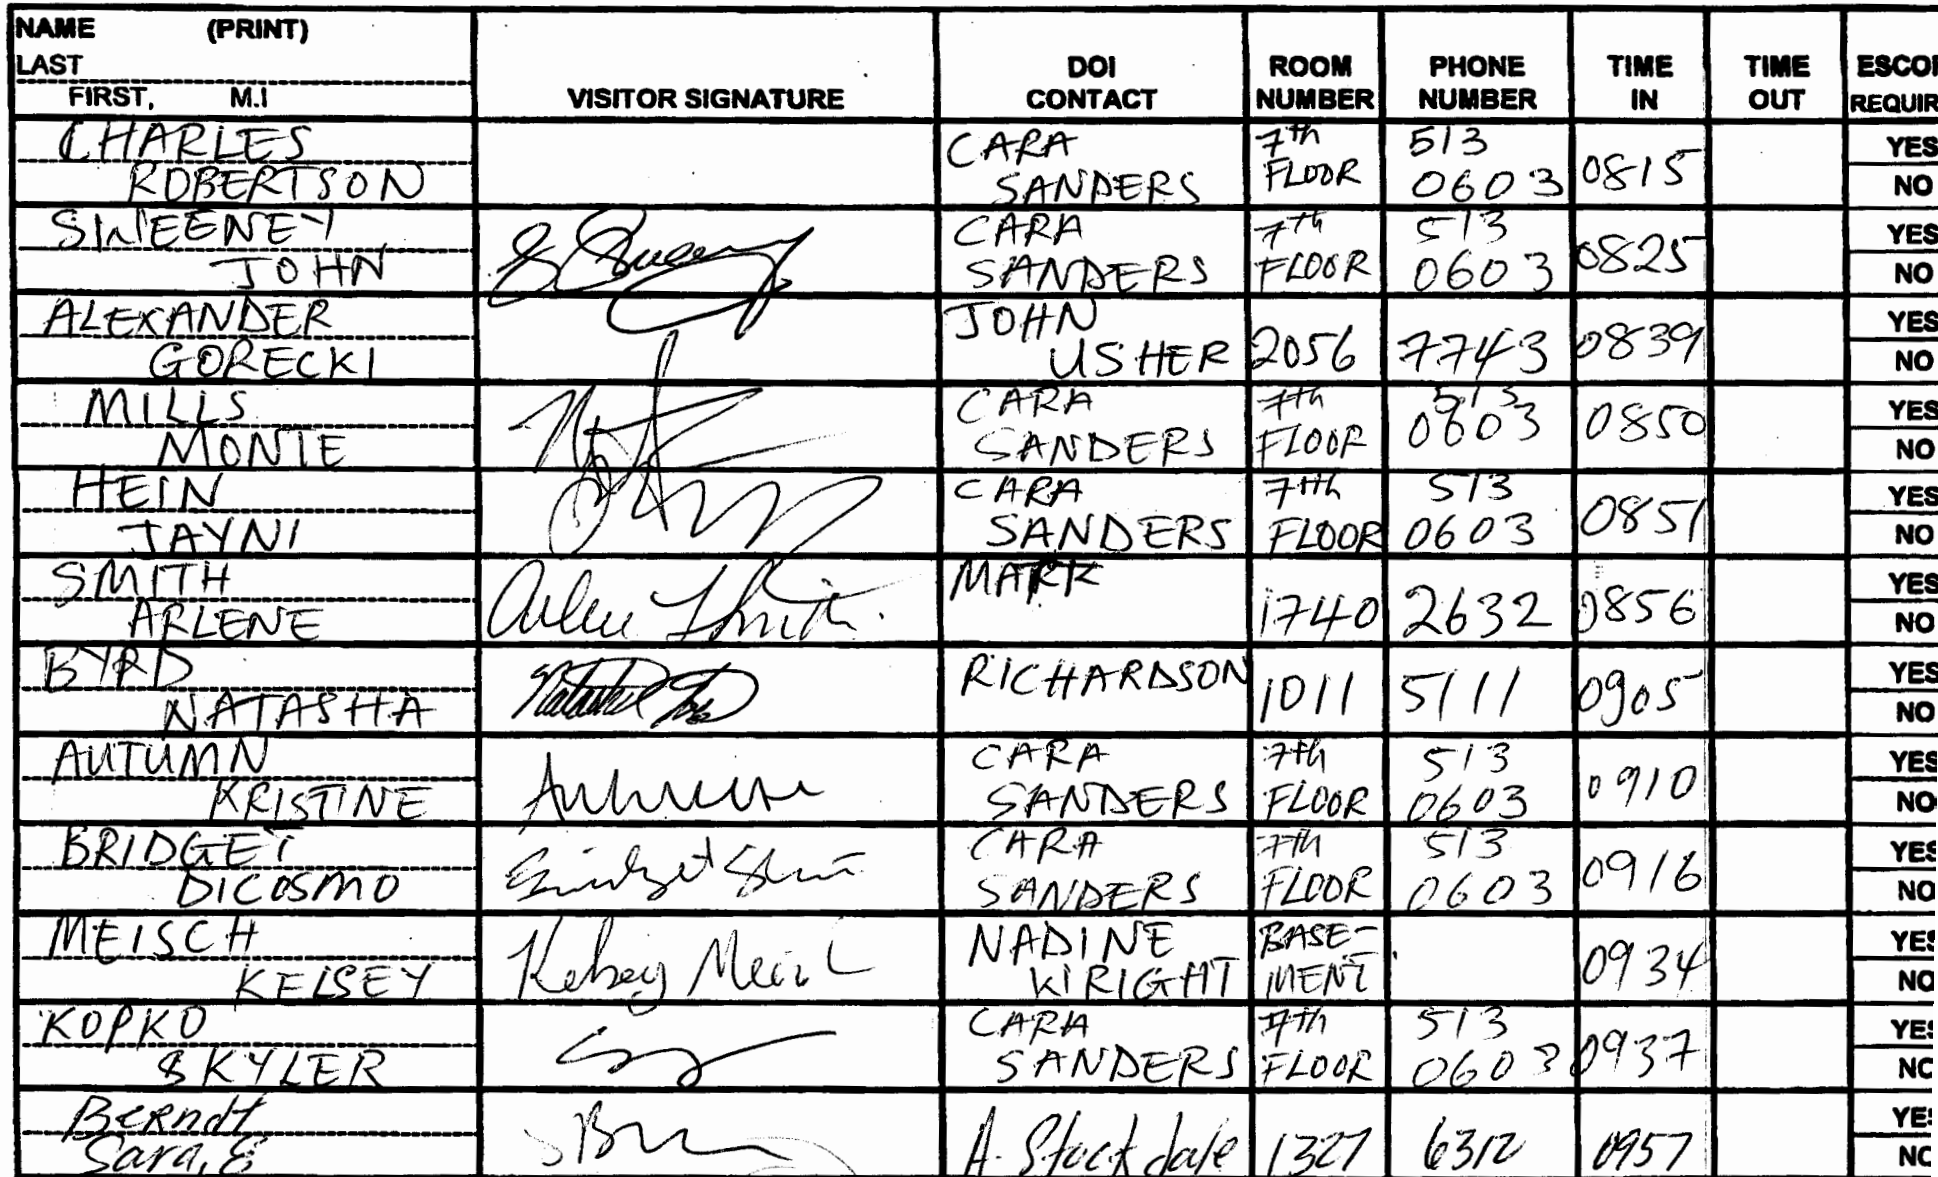 NAME (PRINT)
LAST
FIRST, M.I
VISITOR SIGNATURE
DOI
CONTACT
ROOM
NUMBER
PHONE
NUMBER
TIME
IN
TIME
OUT
ESCOR
REQUIR
CHARLES
ROBERTSON
CARA
SANDERS
7th
FLOOR
513
0603
0815
YES
NO
SWEENEY
JOHN
CARA
SANDERS
7th
FLOOR
513
0603
0825
YES
NO
ALEXANDER
GORECKI
JOHN
USHER
2056
7743
0839
YES
NO
MILLS
MONTE
CARA
SANDERS
7th
FLOOR
513
0603
0850
YES
NO
HEIN
JAYNI
CARA
SANDERS
7th
FLOOR
513
0603
0851
YES
NO
SMITH
ARLENE
MARK
1740
2632
0856
YES
NO
BYRD
NATASHA
RICHARDSON
1011
5111
0905
YES
NO
AUTUMN
KRISTINE
CARA
SANDERS
7th
FLOOR
513
0603
0910
YES
NO
BRIDGET
DICOSMO
CARA
SANDERS
7th
FLOOR
513
0603
0916
YES
NO
MEISCH
KELSEY
Kelsey
NADINE
WRIGHT
BASE-
MENT
0934
YES
NO
KOPKO
SKYLER
CARA
SANDERS
7th
FLOOR
513
0603
0937
YES
NO
Berndt
Sara, E
A. Stockdale
1327
6312
0957
YES
NO